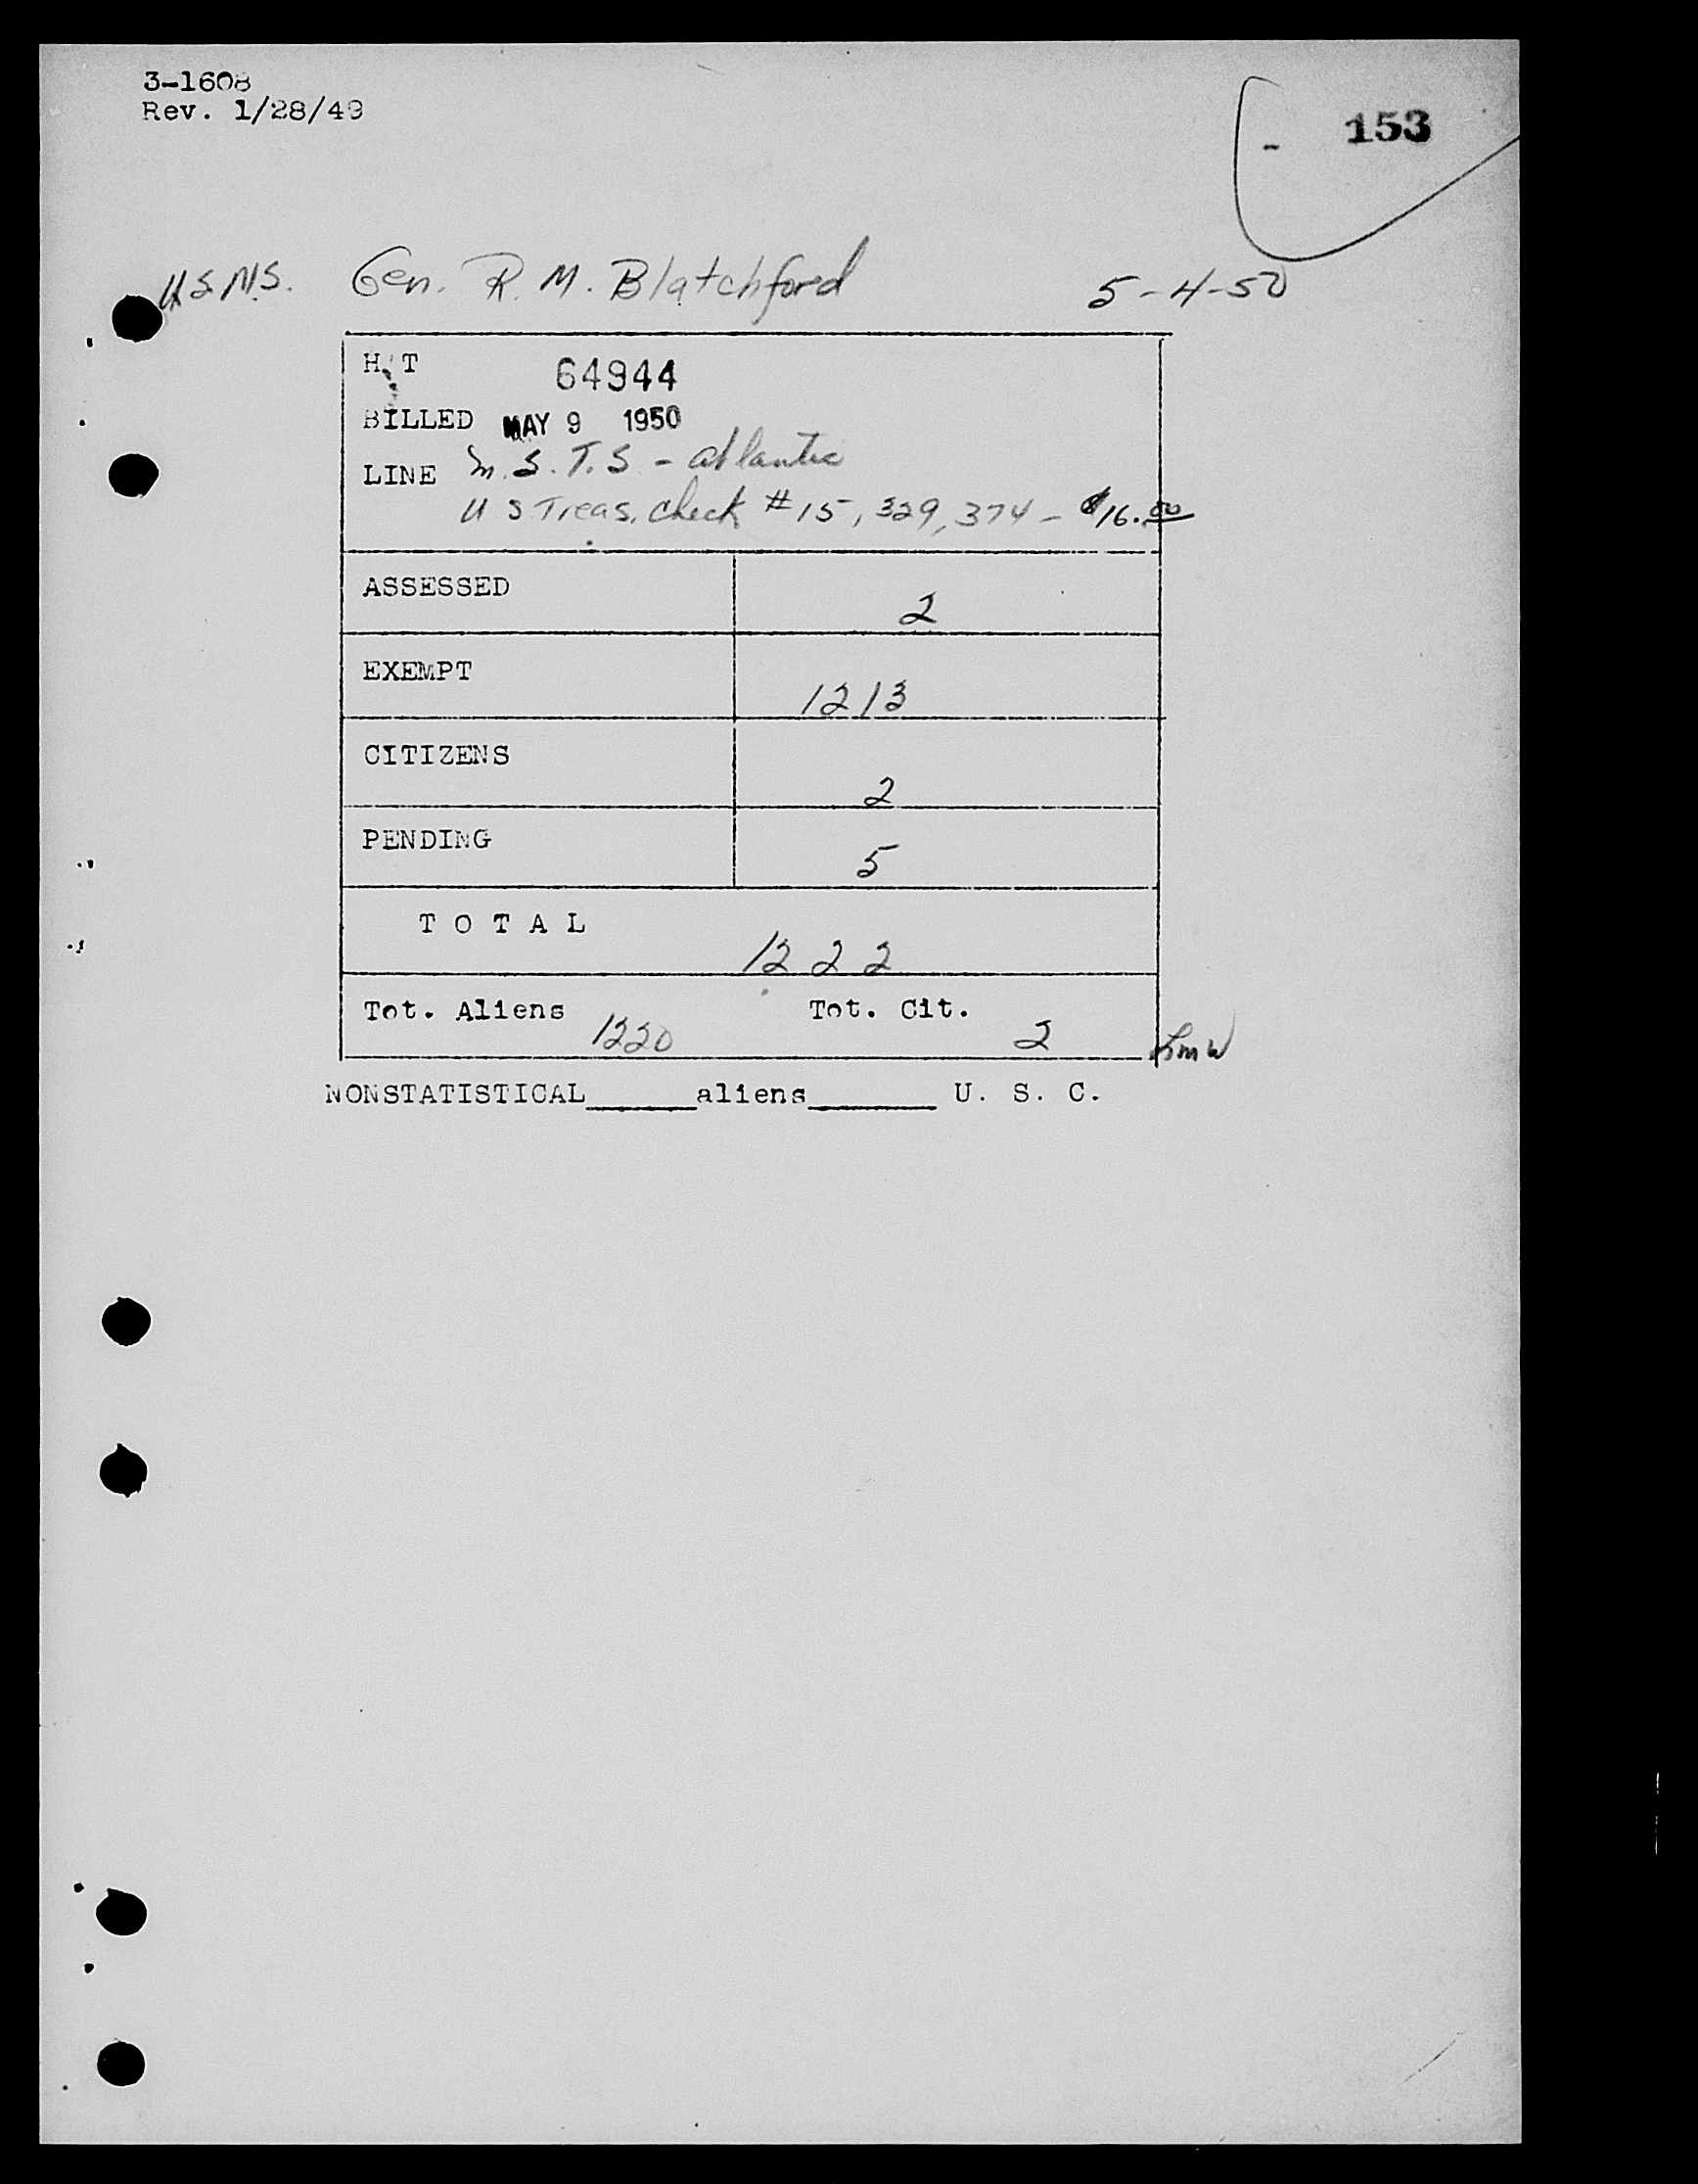 3-1608
Rev. 1/28/49
- 153
U S N.S. Gen. R. M. Blatchford 5-4-50
H. T 64944
BILLED MAY 9 1950
LINE M. S. T. S - Atlantic
U S Treas. Check # 15, 329, 374 - $16.00
ASSESSED 2
EXEMPT 1213
CITIZENS 2
PENDING 5
T O T A L 1222
Tot. Aliens 1220 Tot. Cit. 2
NONSTATISTICAL______aliens_______ U. S. C.